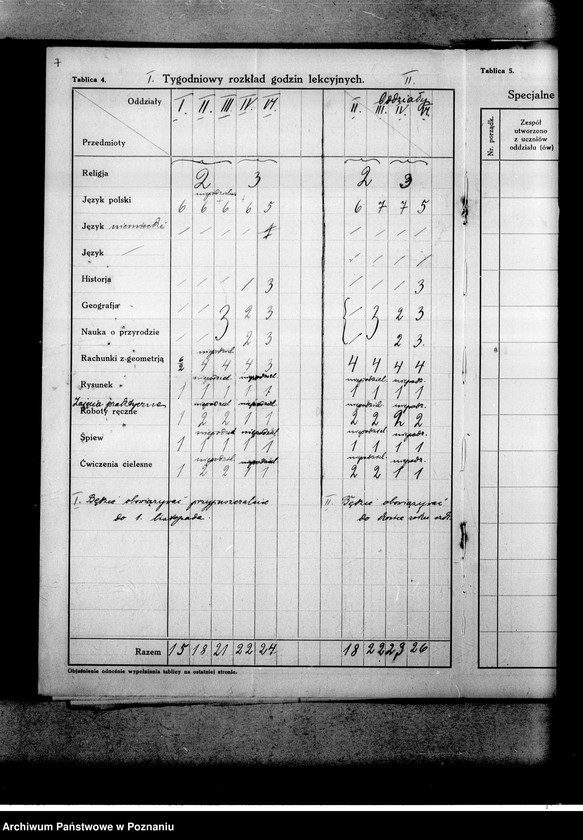 7
Tablica 4. I. Tygodniowy rozkład godzin lekcyjnych. II.
Tablica 5.
Specjalne
Oddziały I. II. III IV VI. Oddziały II. III. IV. VI.
Przedmioty
Nr. porządk.
Zespół
utworzono
z uczniów
oddziału (ów)
Religja 2 3 2 3
Język polski 6 6 6 6 5 6 7 7 5
Język niemiecki
Język
Historja 3 3
Geografja 3 2 3 3 2 3
Nauka o przyrodzie 2 3 2 3.
Rachunki z geometrją 4 4 4 3 4 4 4 4
Rysunek 1 1 1 1 1 1 1 1 1
Zajęcia praktyczne
Roboty ręczne 1 2 2 1 1 2 2 2 2
Śpiew 1 1 1 1 1 1 1 1 1
Ćwiczenia cielesne 1 2 2 1 1 2 2 1 1
I. Będzie obowiązywać przypuszczalnie
do 1. listopada
II. Będzie obowiązywać
do końca roku szk.
Razem 15 18 21 22 24 18 22 23 26
Objaśnienia odnośnie wypełniania tablicy na ostatniej stronie.
Archiwum Państwowe w Poznaniu